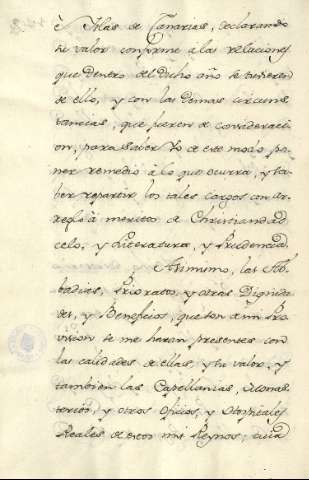 è Islas de Canarias, declarando
su valor conforme à las relaciones
que dentro del dicho año se tubieren
de ello, y con las demas circuns
tancias, que fueren de consideraci
on, para saber Yo de este modo po
ner remedio à lo que ocurra, y sa
ber repartir los tales cargos con ar
reglo à meritos de Christiandad
celo, y Literatura, y Prudencia.
Asimismo, las Ab
badias, Prioratos, y otras Dignida
des, y Beneficios, que son à mi Pro
vision se me haran presentes con
las calidades de ellas, y su valor, y
tambien las Capellanias, Monas
terios, y otros Oficios, y Hospitales
Reales de estos mis Reynos, cuia